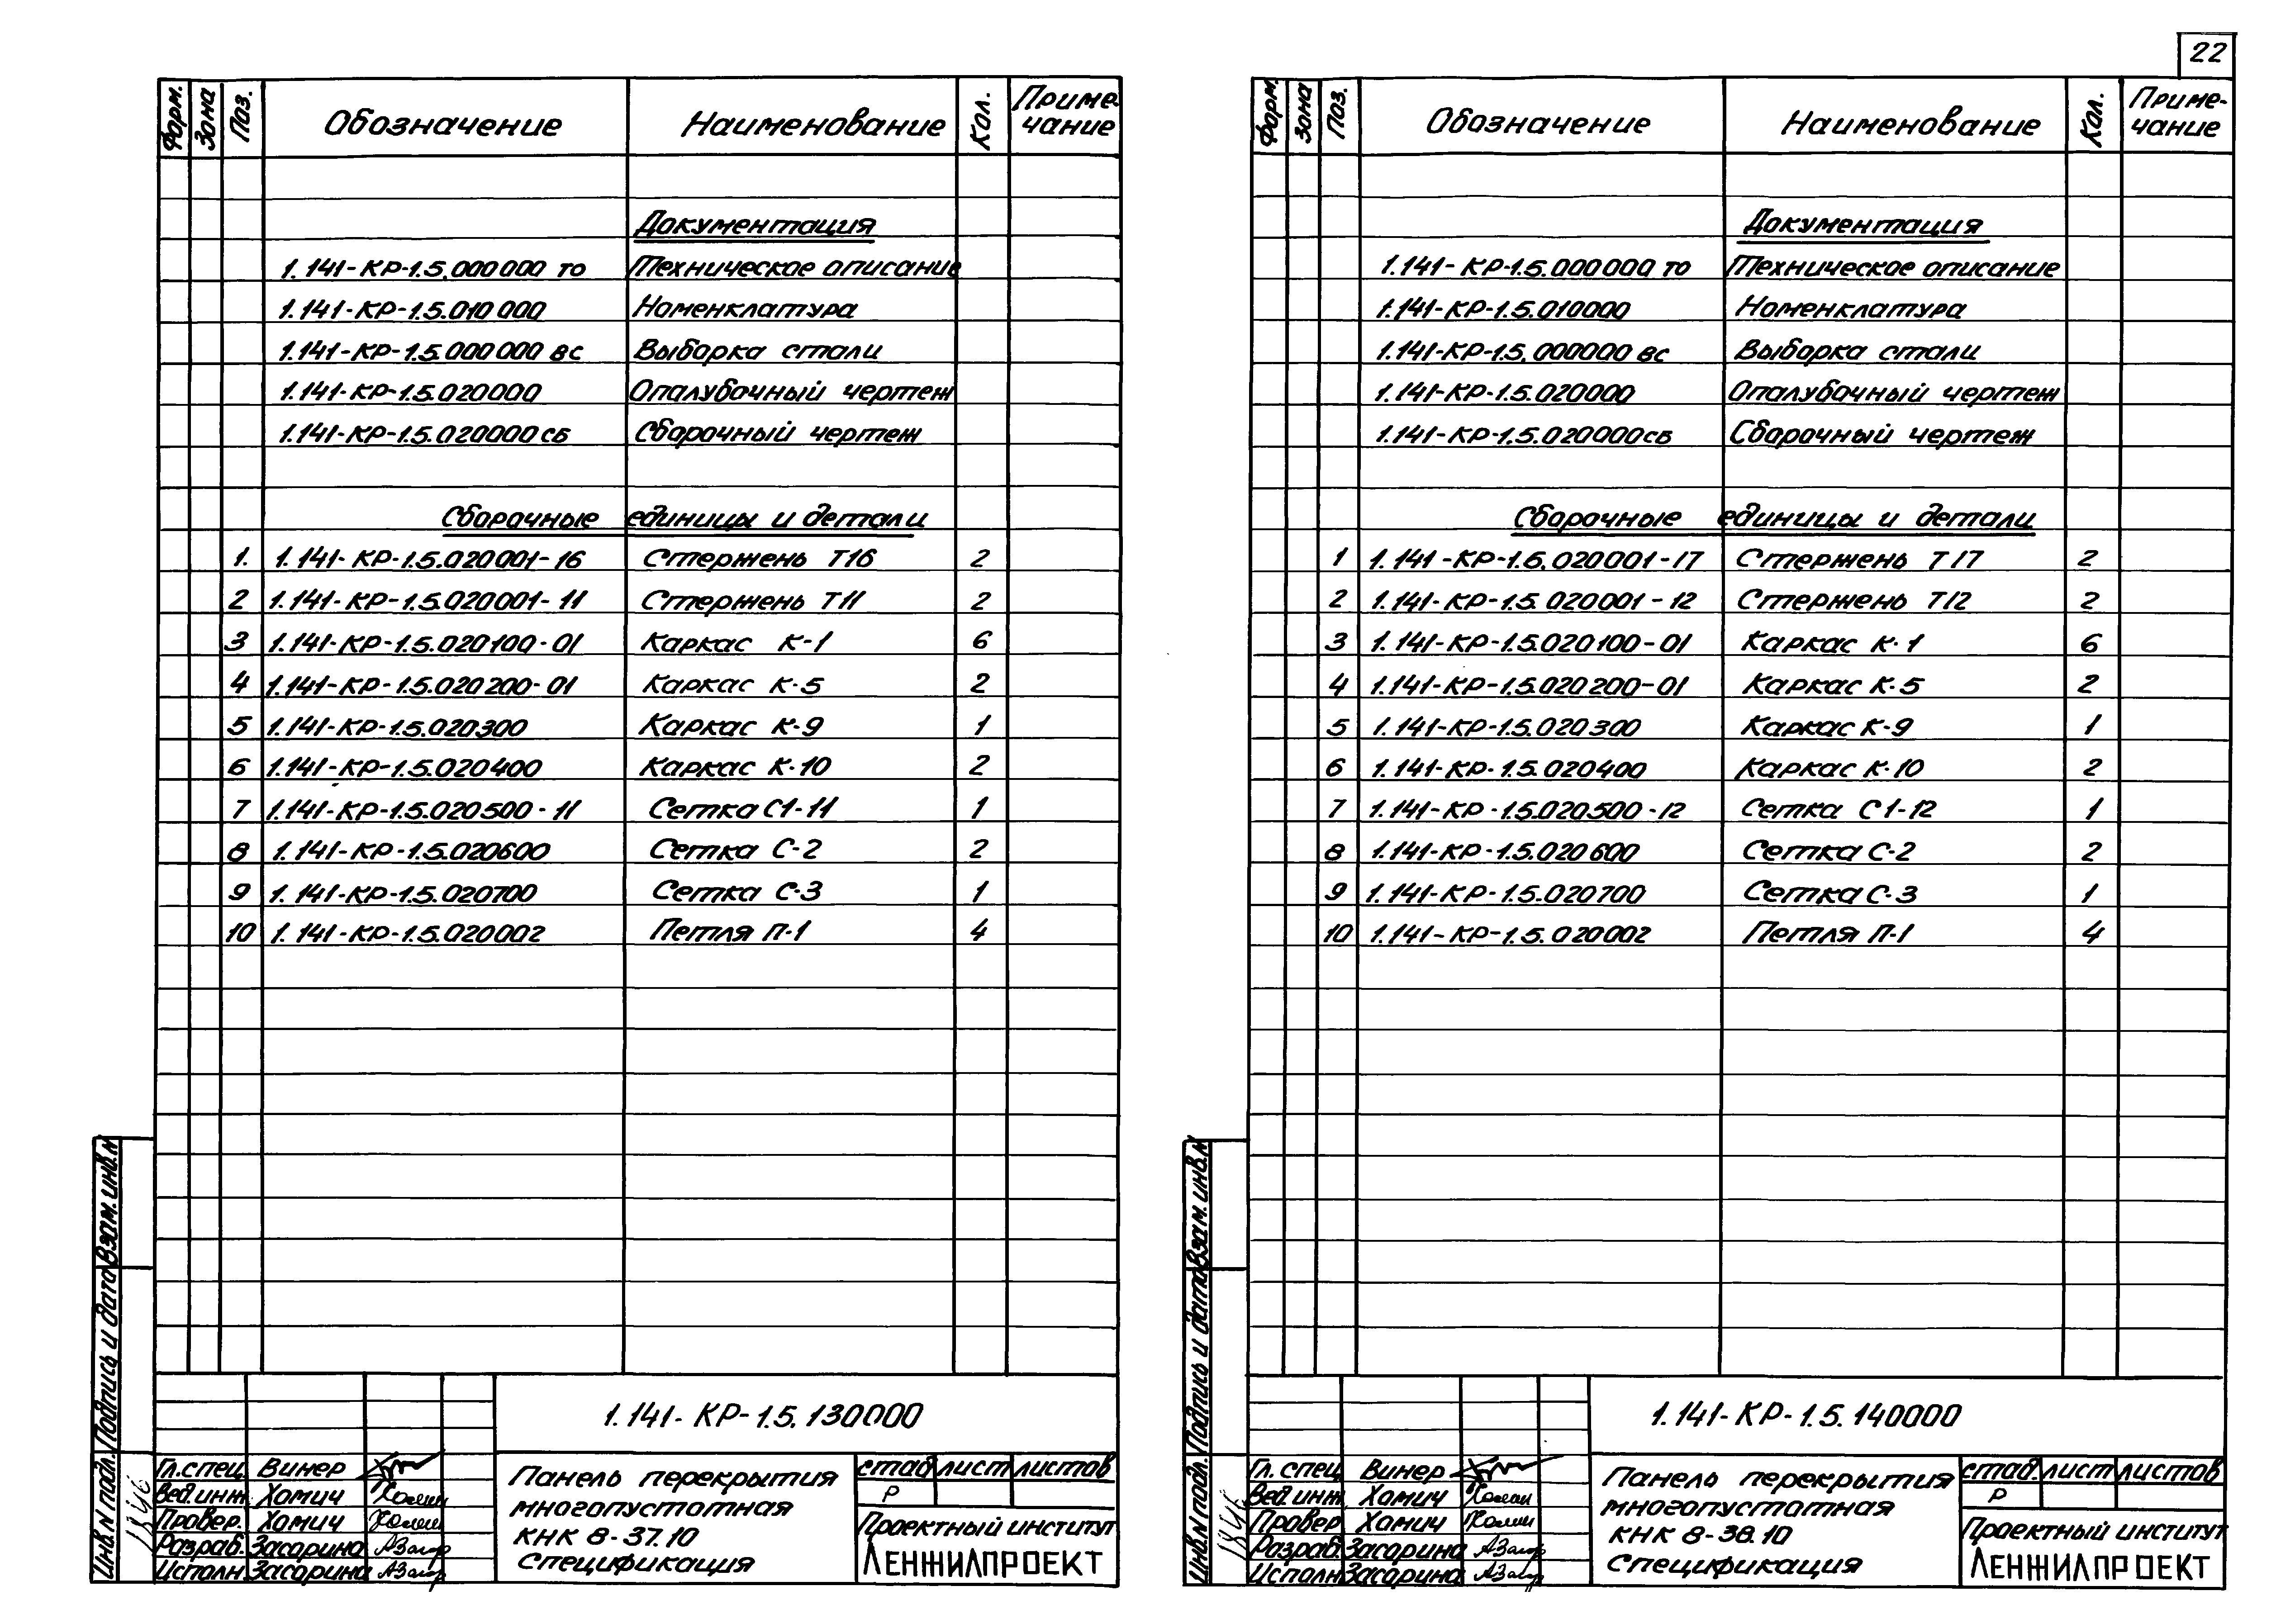 22
Форм. Зона Поз. Обозначение Наименование Кол. Приме-
чание
Документация
1.141-КР-1.5.000000 ТО Техническое описание
1.141-КР-1.5.010000 Номенклатура
1.141-КР-1.5.000000 ВС Выборка стали
1.141-КР-1.5.020000 Опалубочный чертеж
1.141-КР-1.5.020000СБ Сборочный чертеж
Сборочные единицы и детали
1. 1.141-КР-1.5.020001-16 Стержень Т16 2
2 1.141-КР-1.5.020001-11 Стержень Т11 2
3 1.141-КР-1.5.020100-01 Каркас К-1 6
4 1.141-КР-1.5.020200-01 Каркас К-5 2
5 1.141-КР-1.5.020300 Каркас К-9 1
6 1.141-КР-1.5.020400 Каркас К-10 2
7 1.141-КР-1.5.020500-11 Сетка С1-11 1
8 1.141-КР-1.5.020600 Сетка С-2 2
9 1.141-КР-1.5.020700 Сетка С-3 1
10 1.141-КР-1.5.020002 Петля П-1 4
Взам. инв. N
Подпись и дата
Инв. N подл.
1.141-КР-1.5.130000
Гл. спец. Винер
Вед. инж. Хомич
Провер. Хомич
Разраб. Засорина
Исполн. Засорина
Панель перекрытия
многопустотная
КНК 8-37.10
Спецификация
стад. лист листов
Р
Проектный институт
ЛЕНЖИЛПРОЕКТ
Форм. Зона Поз. Обозначение Наименование Кол. Приме-
чание
Документация
1.141-КР-1.5.000000 ТО Техническое описание
1.141-КР-1.5.010000 Номенклатура
1.141-КР-1.5.000000 ВС Выборка стали
1.141-КР-1.5.020000 Опалубочный чертеж
1.141-КР-1.5.020000СБ Сборочный чертеж
Сборочные единицы и детали
1 1.141-КР-1.5.020001-17 Стержень Т17 2
2 1.141-КР-1.5.020001-12 Стержень Т12 2
3 1.141-КР-1.5.020100-01 Каркас К-1 6
4 1.141-КР-1.5.020200-01 Каркас К-5 2
5 1.141-КР-1.5.020300 Каркас К-9 1
6 1.141-КР-1.5.020400 Каркас К-10 2
7 1.141-КР-1.5.020500-12 Сетка С1-12 1
8 1.141-КР-1.5.020600 Сетка С-2 2
9 1.141-КР-1.5.020700 Сетка С-3 1
10 1.141-КР-1.5.020002 Петля П-1 4
Взам. инв. N
Подпись и дата
Инв. N подл.
1.141-КР-1.5.140000
Гл. спец. Винер
Вед. инж. Хомич
Провер. Хомич
Разраб. Засорина
Исполн. Засорина
Панель перекрытия
многопустотная
КНК 8-38.10
Спецификация
стад. лист листов
Р
Проектный институт
ЛЕНЖИЛПРОЕКТ